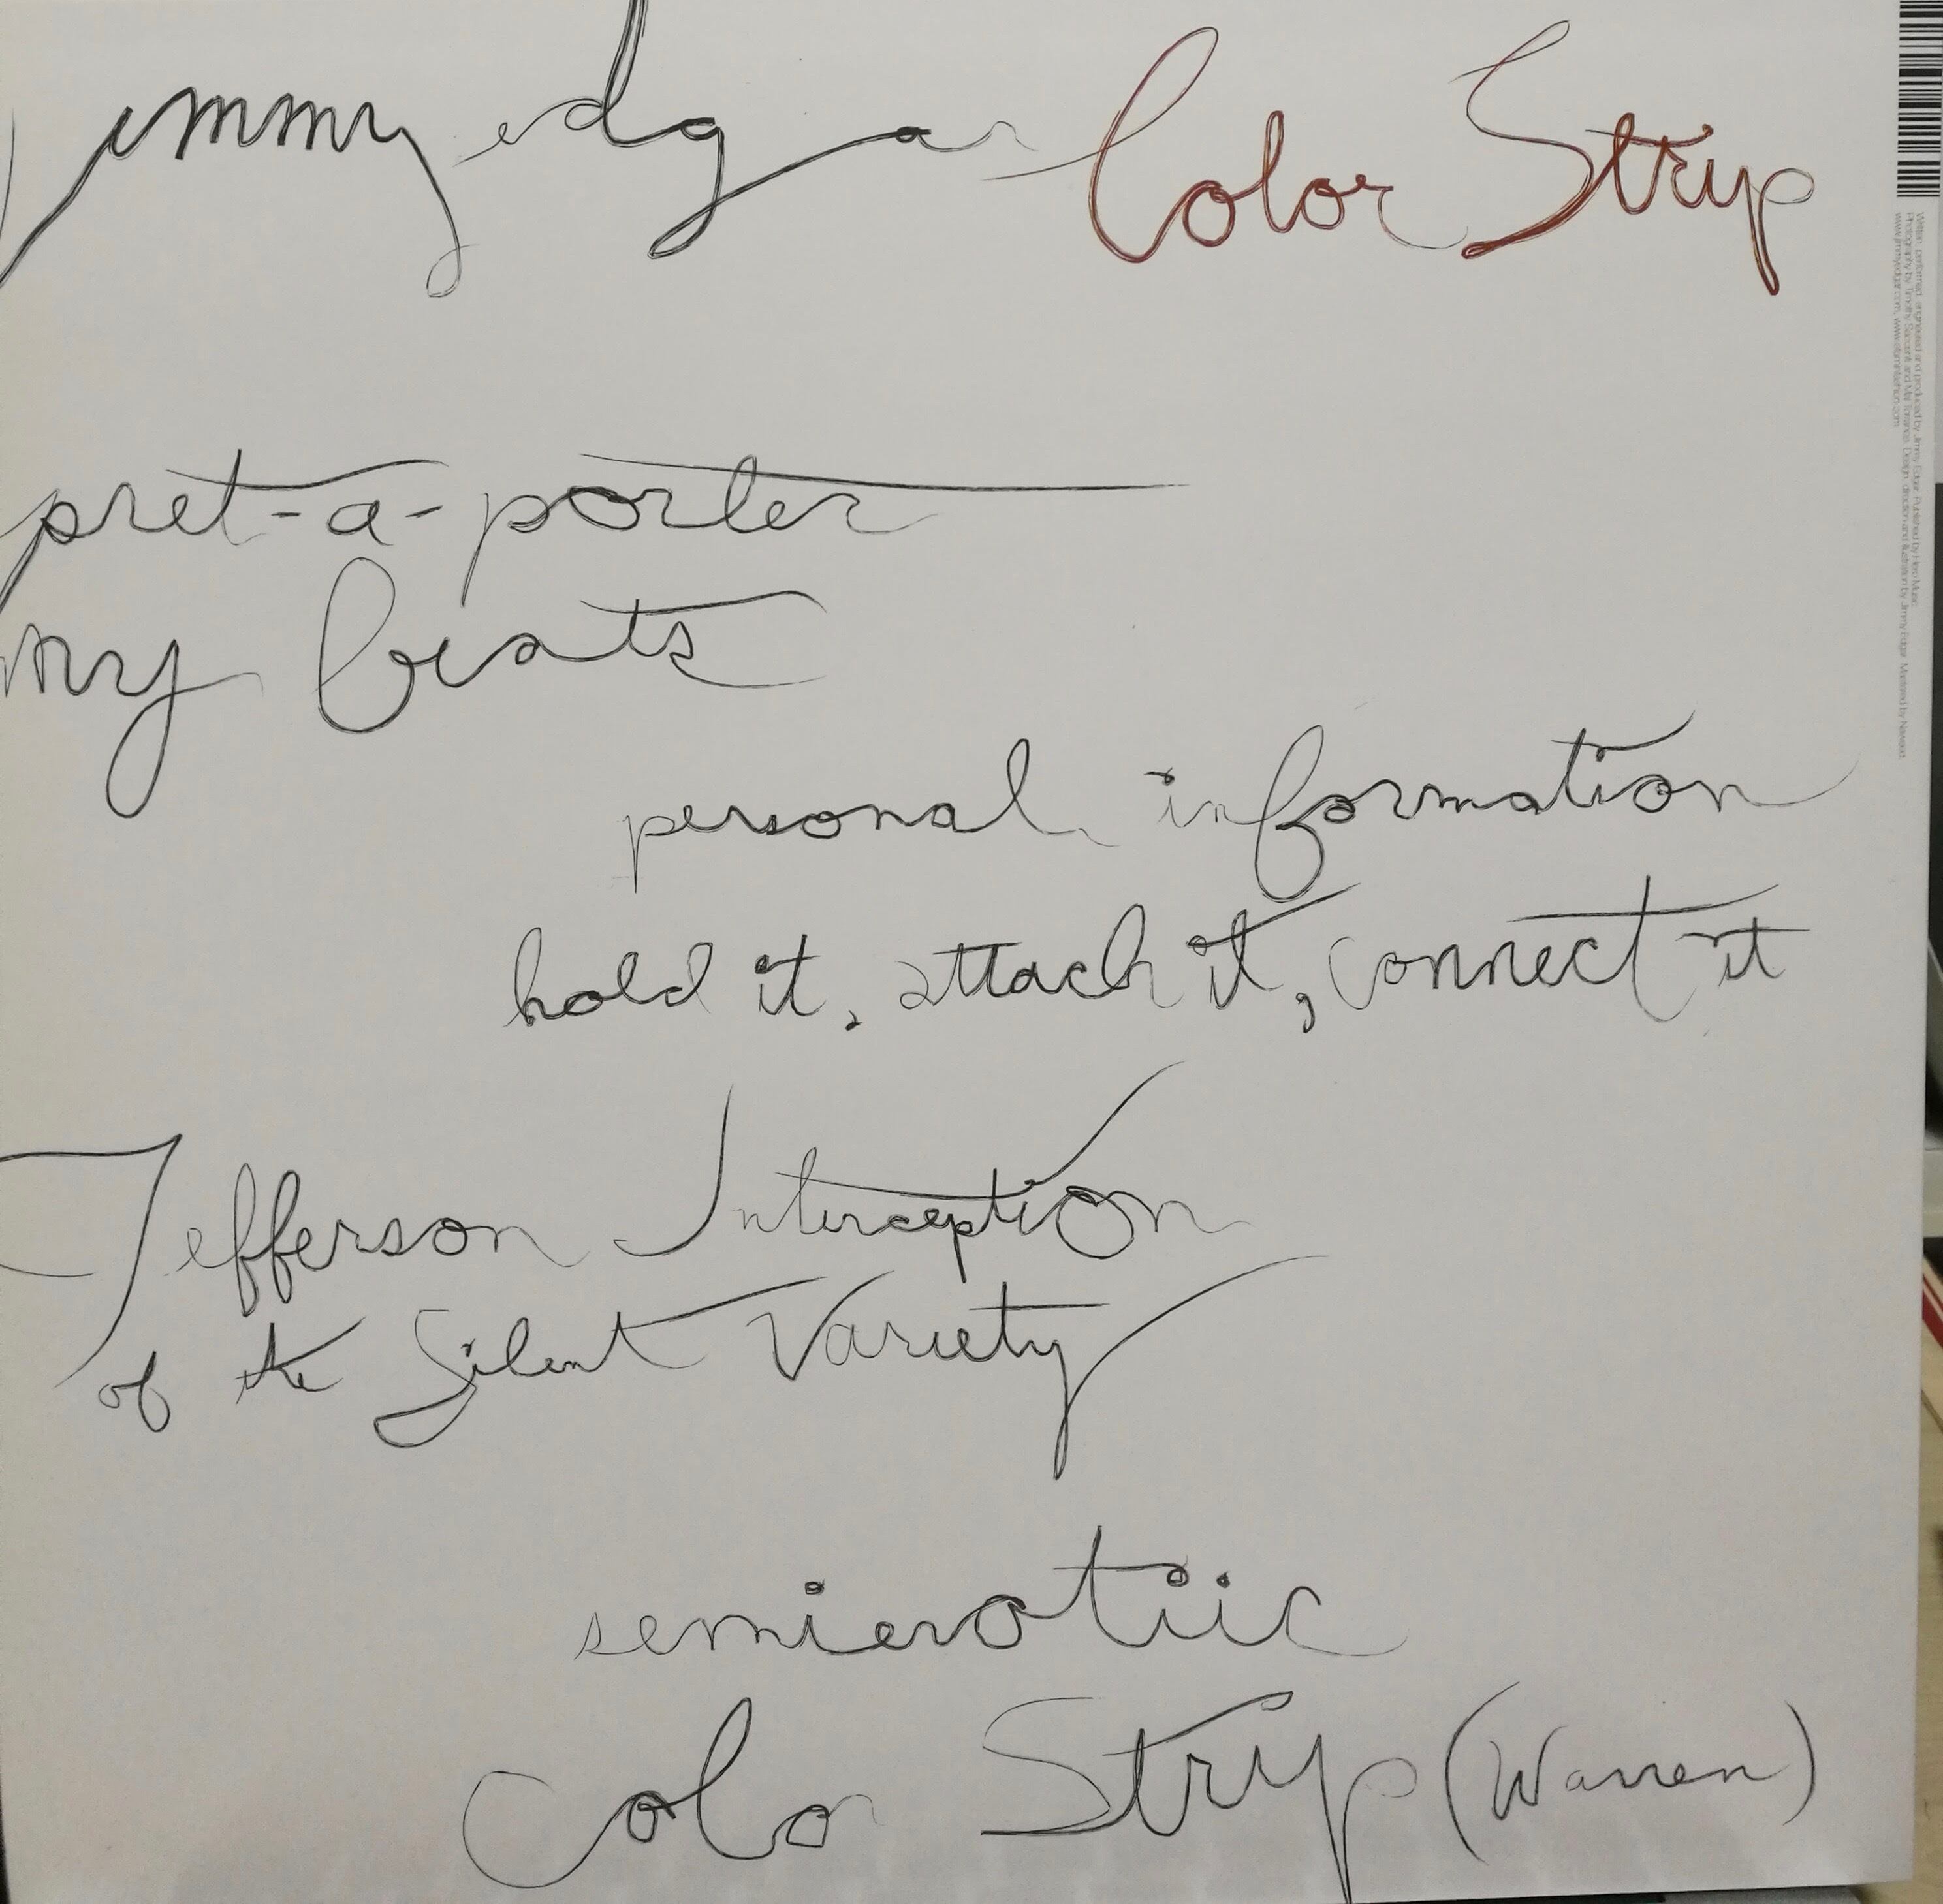 Jimmy edgar Color Strip
pret-a-porter
my beats
personal information
hold it, attach it, connect it
Jefferson Interception
of the Silent Variety
semierotiic
Color Strip (Warren)
Written, performed, engineered and produced by Jimmy Edgar. Published by Hero Music.
Photography by Timothy Saccenti and Mai Torrance. Design, direction and illustration by Jimmy Edgar. Mastered by
www.jimmyedgar.com,